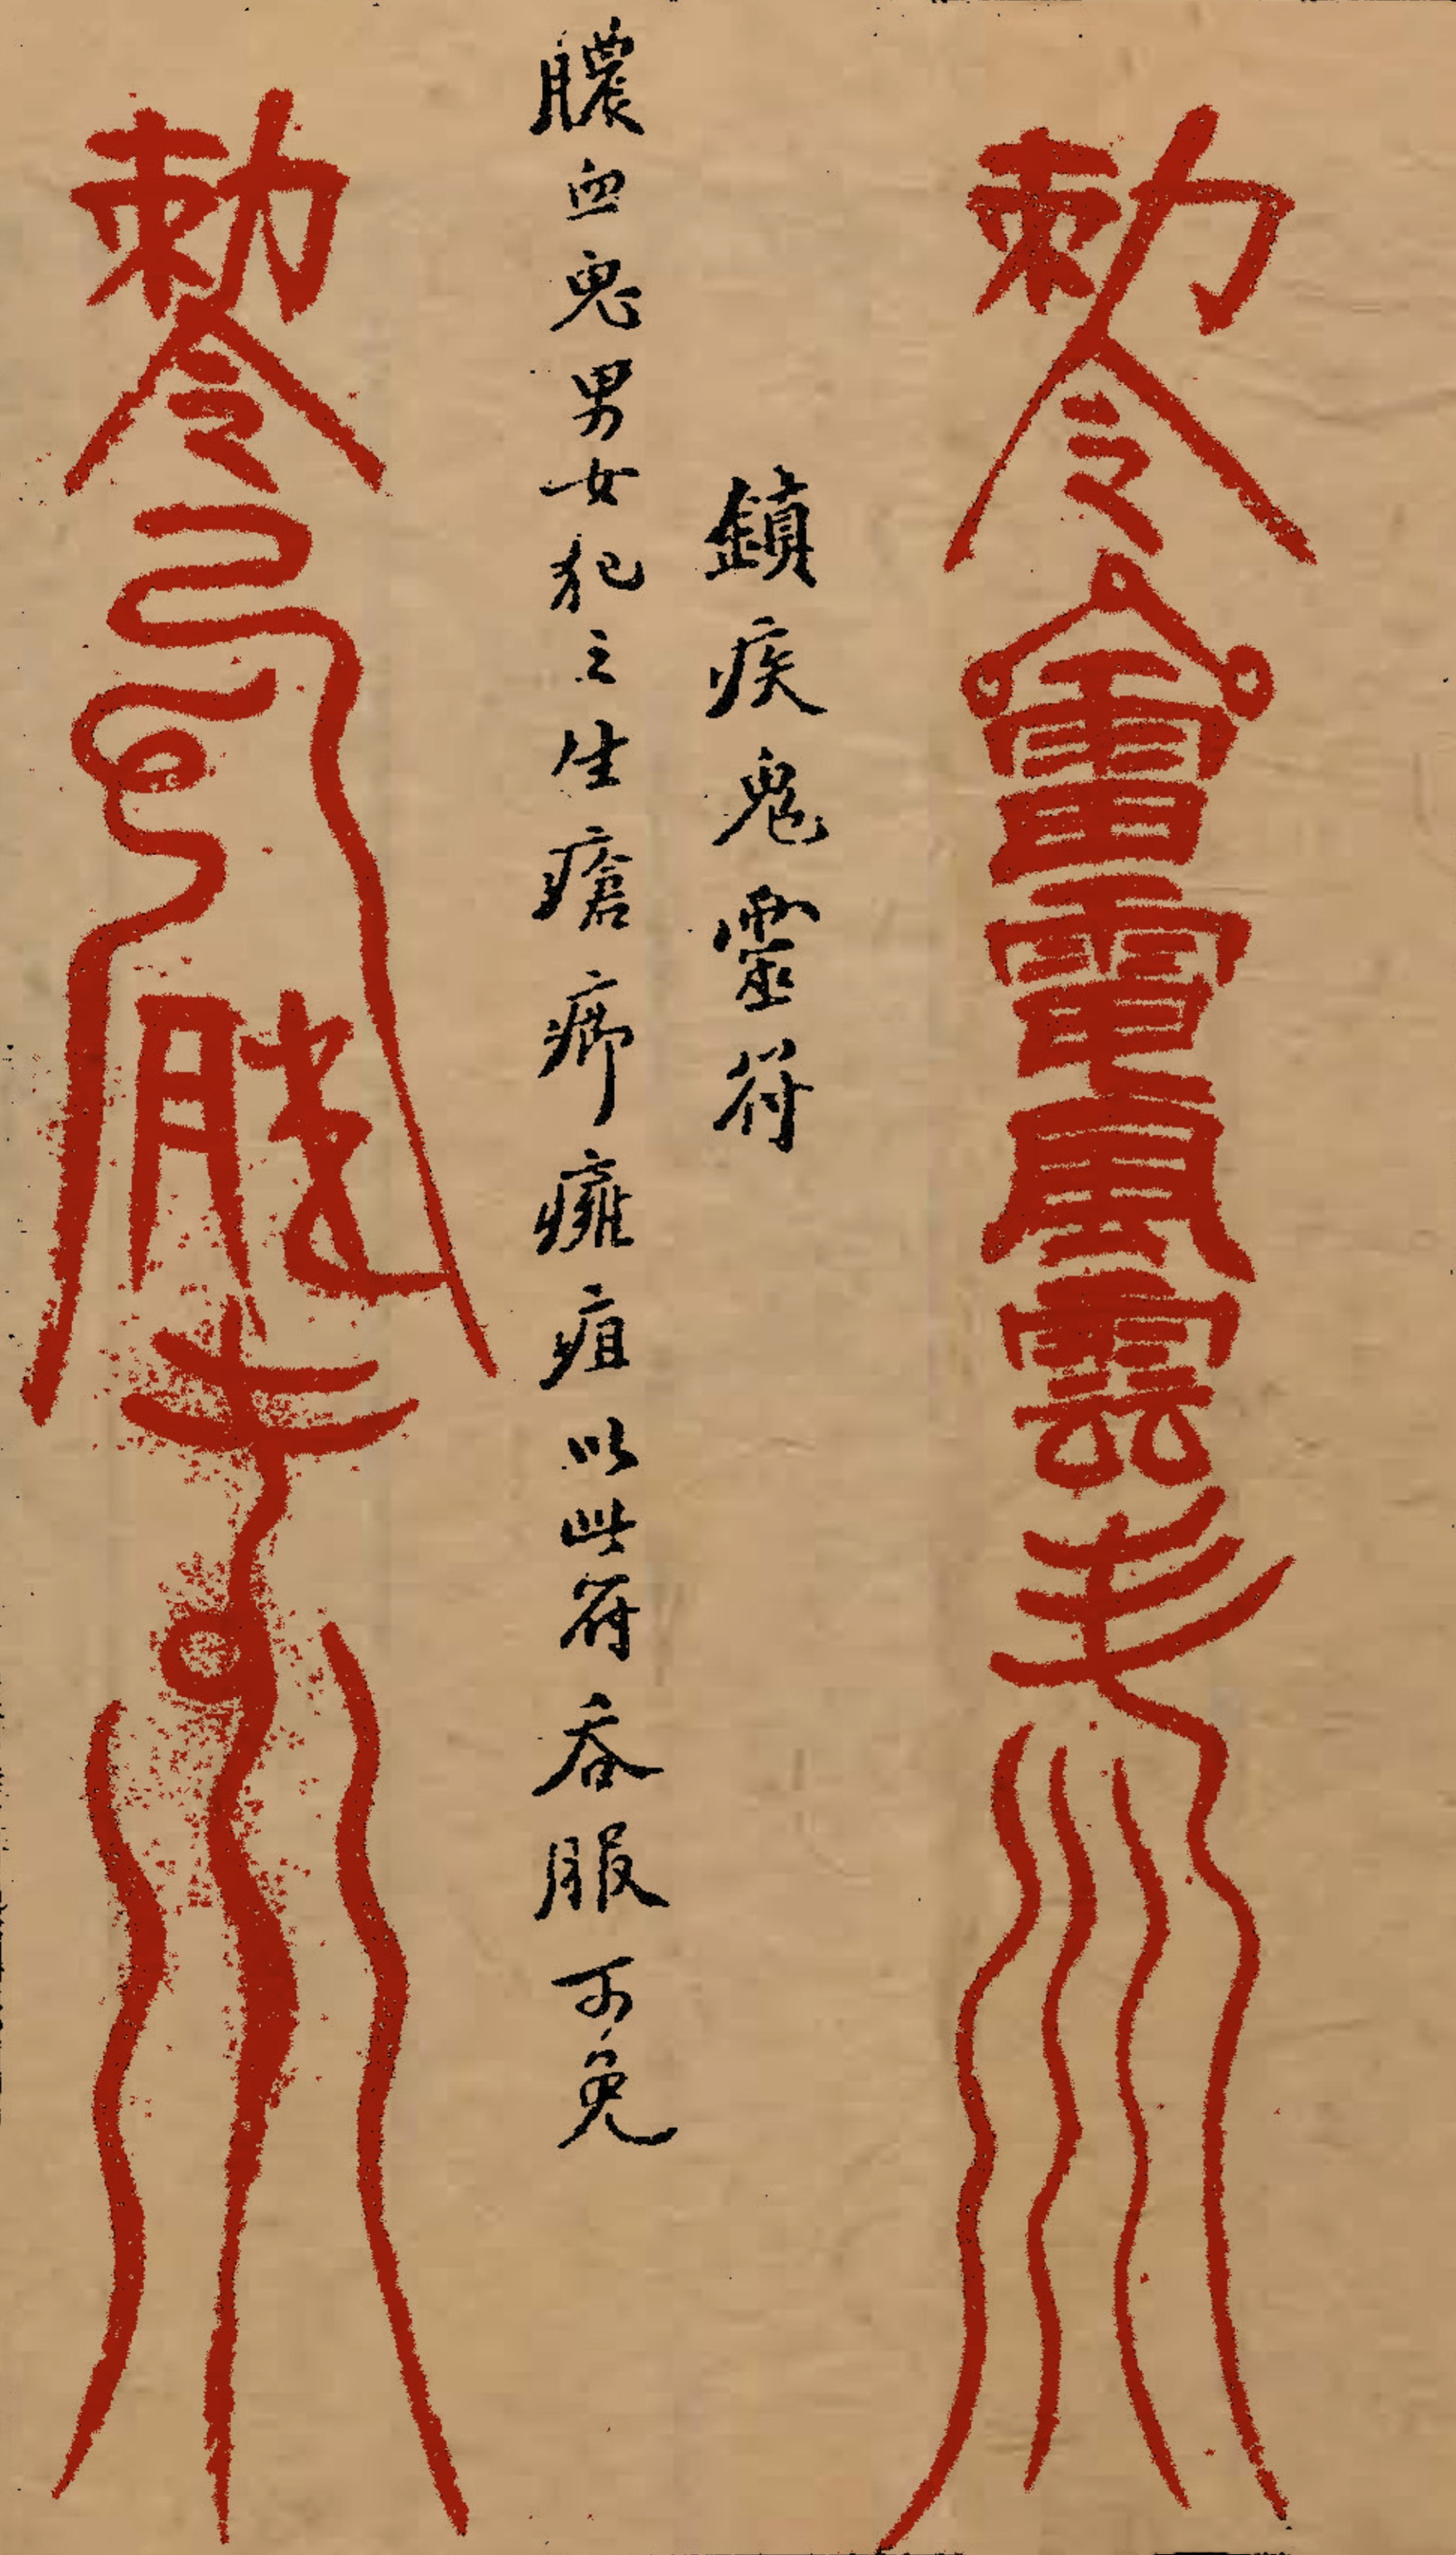 勅令雷電風雲
鎮疾鬼靈符
膿血鬼男女犯之生瘡癤癰疽以此符吞服可免
勅令